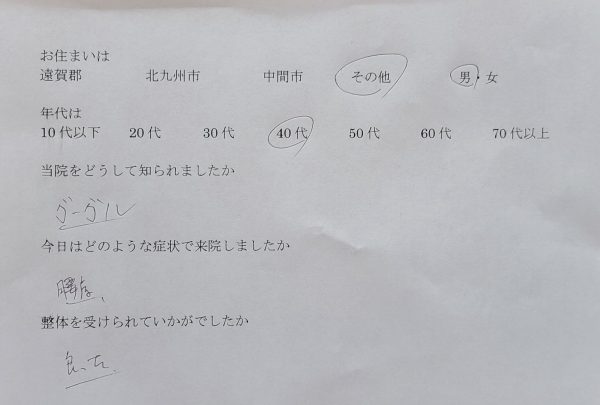 お住まいは
遠賀郡 北九州市 中間市 その他 男・女
年代は
10代以下 20代 30代 40代 50代 60代 70代以上
当院をどうして知られましたか
グーグル
今日はどのような症状で来院しましたか
腰痛、
整体を受けられていかがでしたか
良った